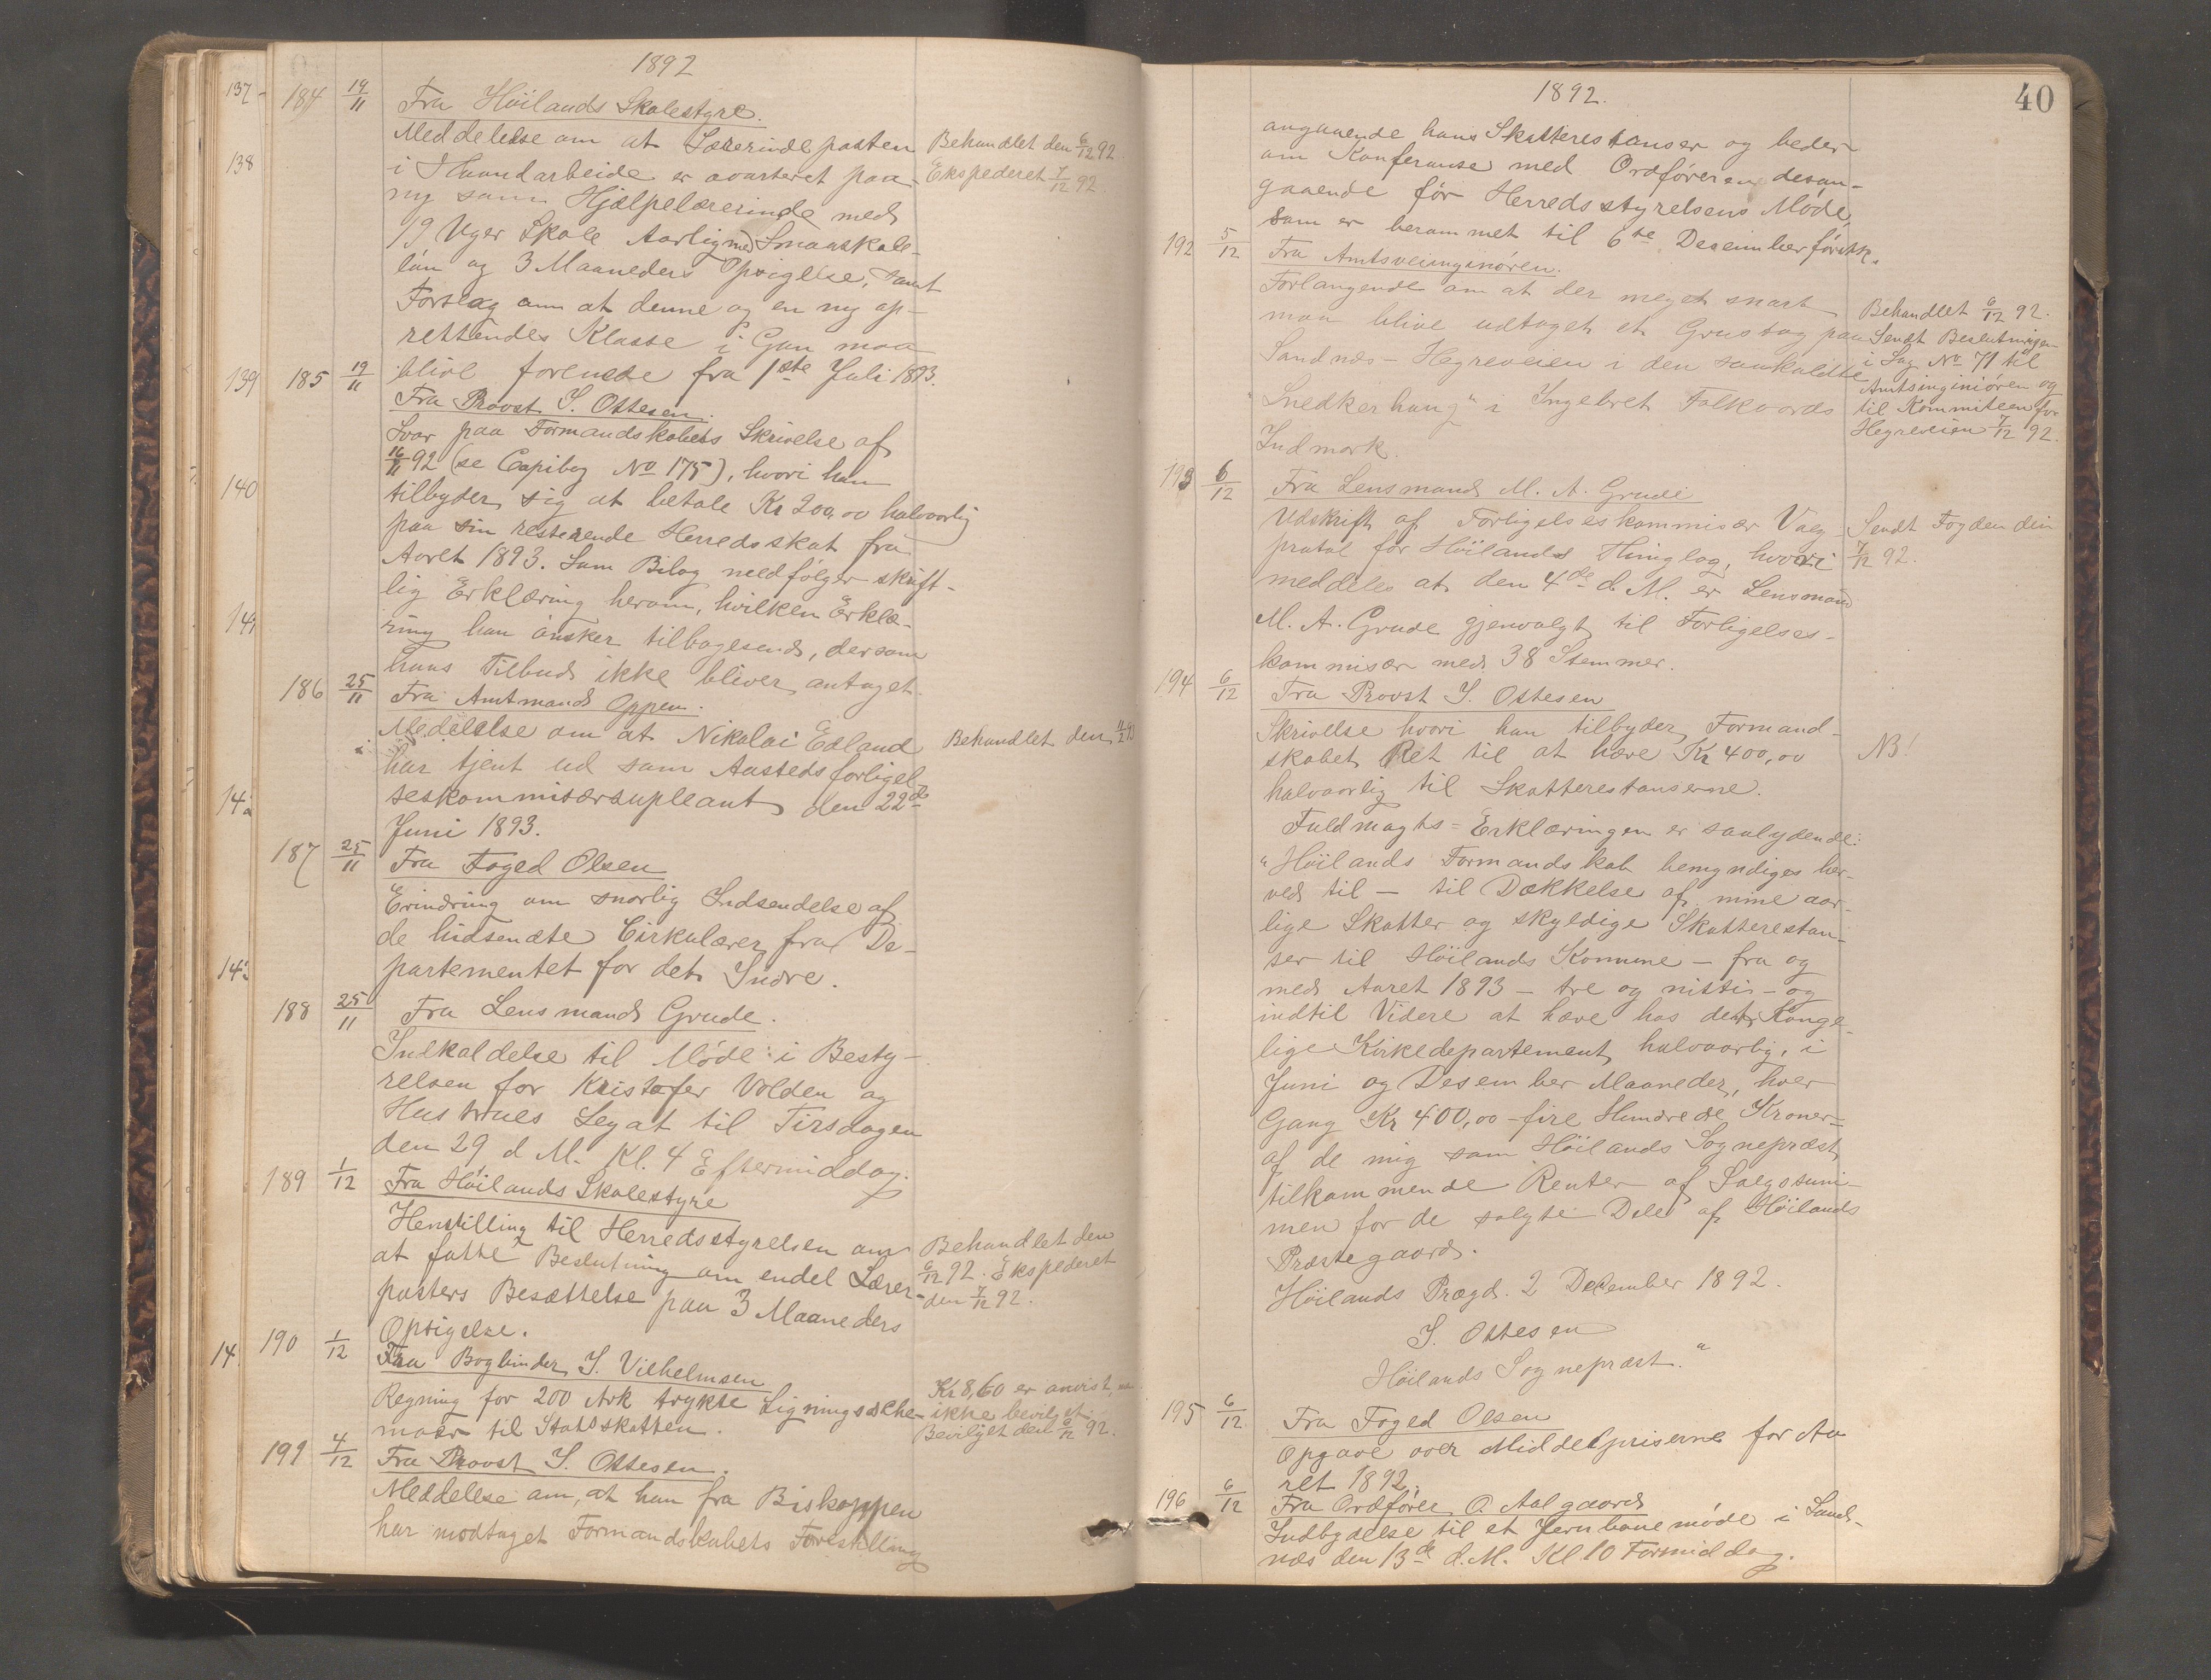 1892
137
184 19/11 Fra Höilands Skolestyre.
Meddelelse om at Lærerindeposten Behandlet den 6/12 92.
138
i Haandarbeide er averteret paa Ekspederet 7/12 92.
ny som Hjælpelærerinde med
19 Uger Skole Aarlig med Smaaskole-
løn og 3 Maaneders Opsigelse, samt
Forslag om at denne og en ny op-
rettendes Klasse i Gan maa
blive forenede fra 1ste Juli 1893.
139
185 19/11 Fra Provst S. Ottesen.
Svar paa Formandskabets Skrivelse af
16/11 92 (se Copibog No 175), hvori han
140
tilbyder sig at betale Kr 200,00 halvaarlig
paa sin resterende Herredsskat fra
Aaret 1893. Som Bilag medfølger skrift-
lig Erklæring herom, hvilken Erklæ-
141
ring han ønsker tilbagesendt, dersom
hans Tilbud ikke bliver antaget.
186 25/11 Fra Amtmand Oppen.
Meddelelse om at Nikolai Edland Behandlet den 11/2 93
har tjent ud som Aastedsforligel-
142
seskommisærsupleant den 22de
Juni 1893.
187 25/11 Fra Foged Olsen
Erindring om snarlig Indsendelse af
de hidsendte Cirkulærer fra De-
143
partementet for det Indre.
188 25/11 Fra Lensmand Grude.
Indkaldelse til Møde i Besty-
relsen for Kristofer Volden og
Hustrues Legat til Tirsdagen
den 29 d M. Kl. 4 Eftermiddag.
189 1/12 Fra Höilands Skolestyre
Henstilling til Herredsstyrelsen om Behandlet den
at fatte Beslutning om endel Lærer- 6/12 92. Ekspederet
posters Besættelse paa 3 Maaneders den 7/12 92.
Opsigelse.
14
190 1/12 Fra Bogbinder S. Vilhelmsen
Regning for 200 Ark trykte Ligningssche- Kr 8,60 er anvist, men
maer til Statsskatten. ikke bevilget.
Bevilget den 6/12 92.
191 4/12 Fra Provst S. Ottesen.
Meddelese om, at han fra Biskoppen
har modtaget Formandskabets Forestilling
40
1892.
angaaende hans Skatterestanser og beder
om Konferanse med Ordføreren desan-
gaaende før Herredsstyrelsens Møde,
som er berammet til 6te Desember førstk.
192 5/12 Fra Amtsveiinginøren.
Forlangende om at der meget snart Behandlet 6/12 92.
maa blive udtaget et Grustag paa Sendt Beslutningen
Sandnæs-Hegreveien i den saakaldte i Sag No 71 til
Amtsinginiøren og
"Snedkerhaug" i Ingebret Folkvords til Kommiteen for
Indmark. Hegreveien 7/12 92.
193 6/12 Fra Lensmand M. A. Grude
Udskrift af Forligelseskommisær Valg- Sendt Fogden den
protol for Höilands Thinglag, hvori 7/12 92.
meddeles at den 4de d. M. er Lensmand
M. A. Grude gjenvalgt til Forligelses-
kommisær med 38 Stemmer.
194 6/12 Fra Provst S. Ottesen
Skrivelse hvori han tilbyder Formand-
skabet Ret til at hæve Kr 400,00 NB!
halvaarlig til Skatterestanserne.
Fuldmagts=Erklæringen er saalydende:
"Höilands Formandskab bemyndiges her-
ved til - til Dækkelse af mine aar-
lige Skatter og skyldige Skatterestan-
ser til Höilands Komune - fra og
med Aaret 1893 - tre og nitti - og
indtil Videre at hæve hos det Konge-
lige Kirkedepartement halvaarlig, i
Juni og Desember Maaneder, hver
Gang Kr 400,00 - fire Hundrede Kroner=
af de mig som Höilands Sognepræst
tilkommende Renter af Salgssum-
men for de solgte Dele af Höilands
Præstegaard.
Höilands Prægd. 2 December 1892.
S. Ottesen
Höilands Sognepræst."
195 6/12 Fra Foged Olsen
Opgave over Middelpriserne for Aa
ret 1892.
196 6/12 Fra Ordfører O. Aalgaard
Indbydelse til et Jernbanemøde i Sand-
næs den 13de d. M. Kl 10 Formiddag.